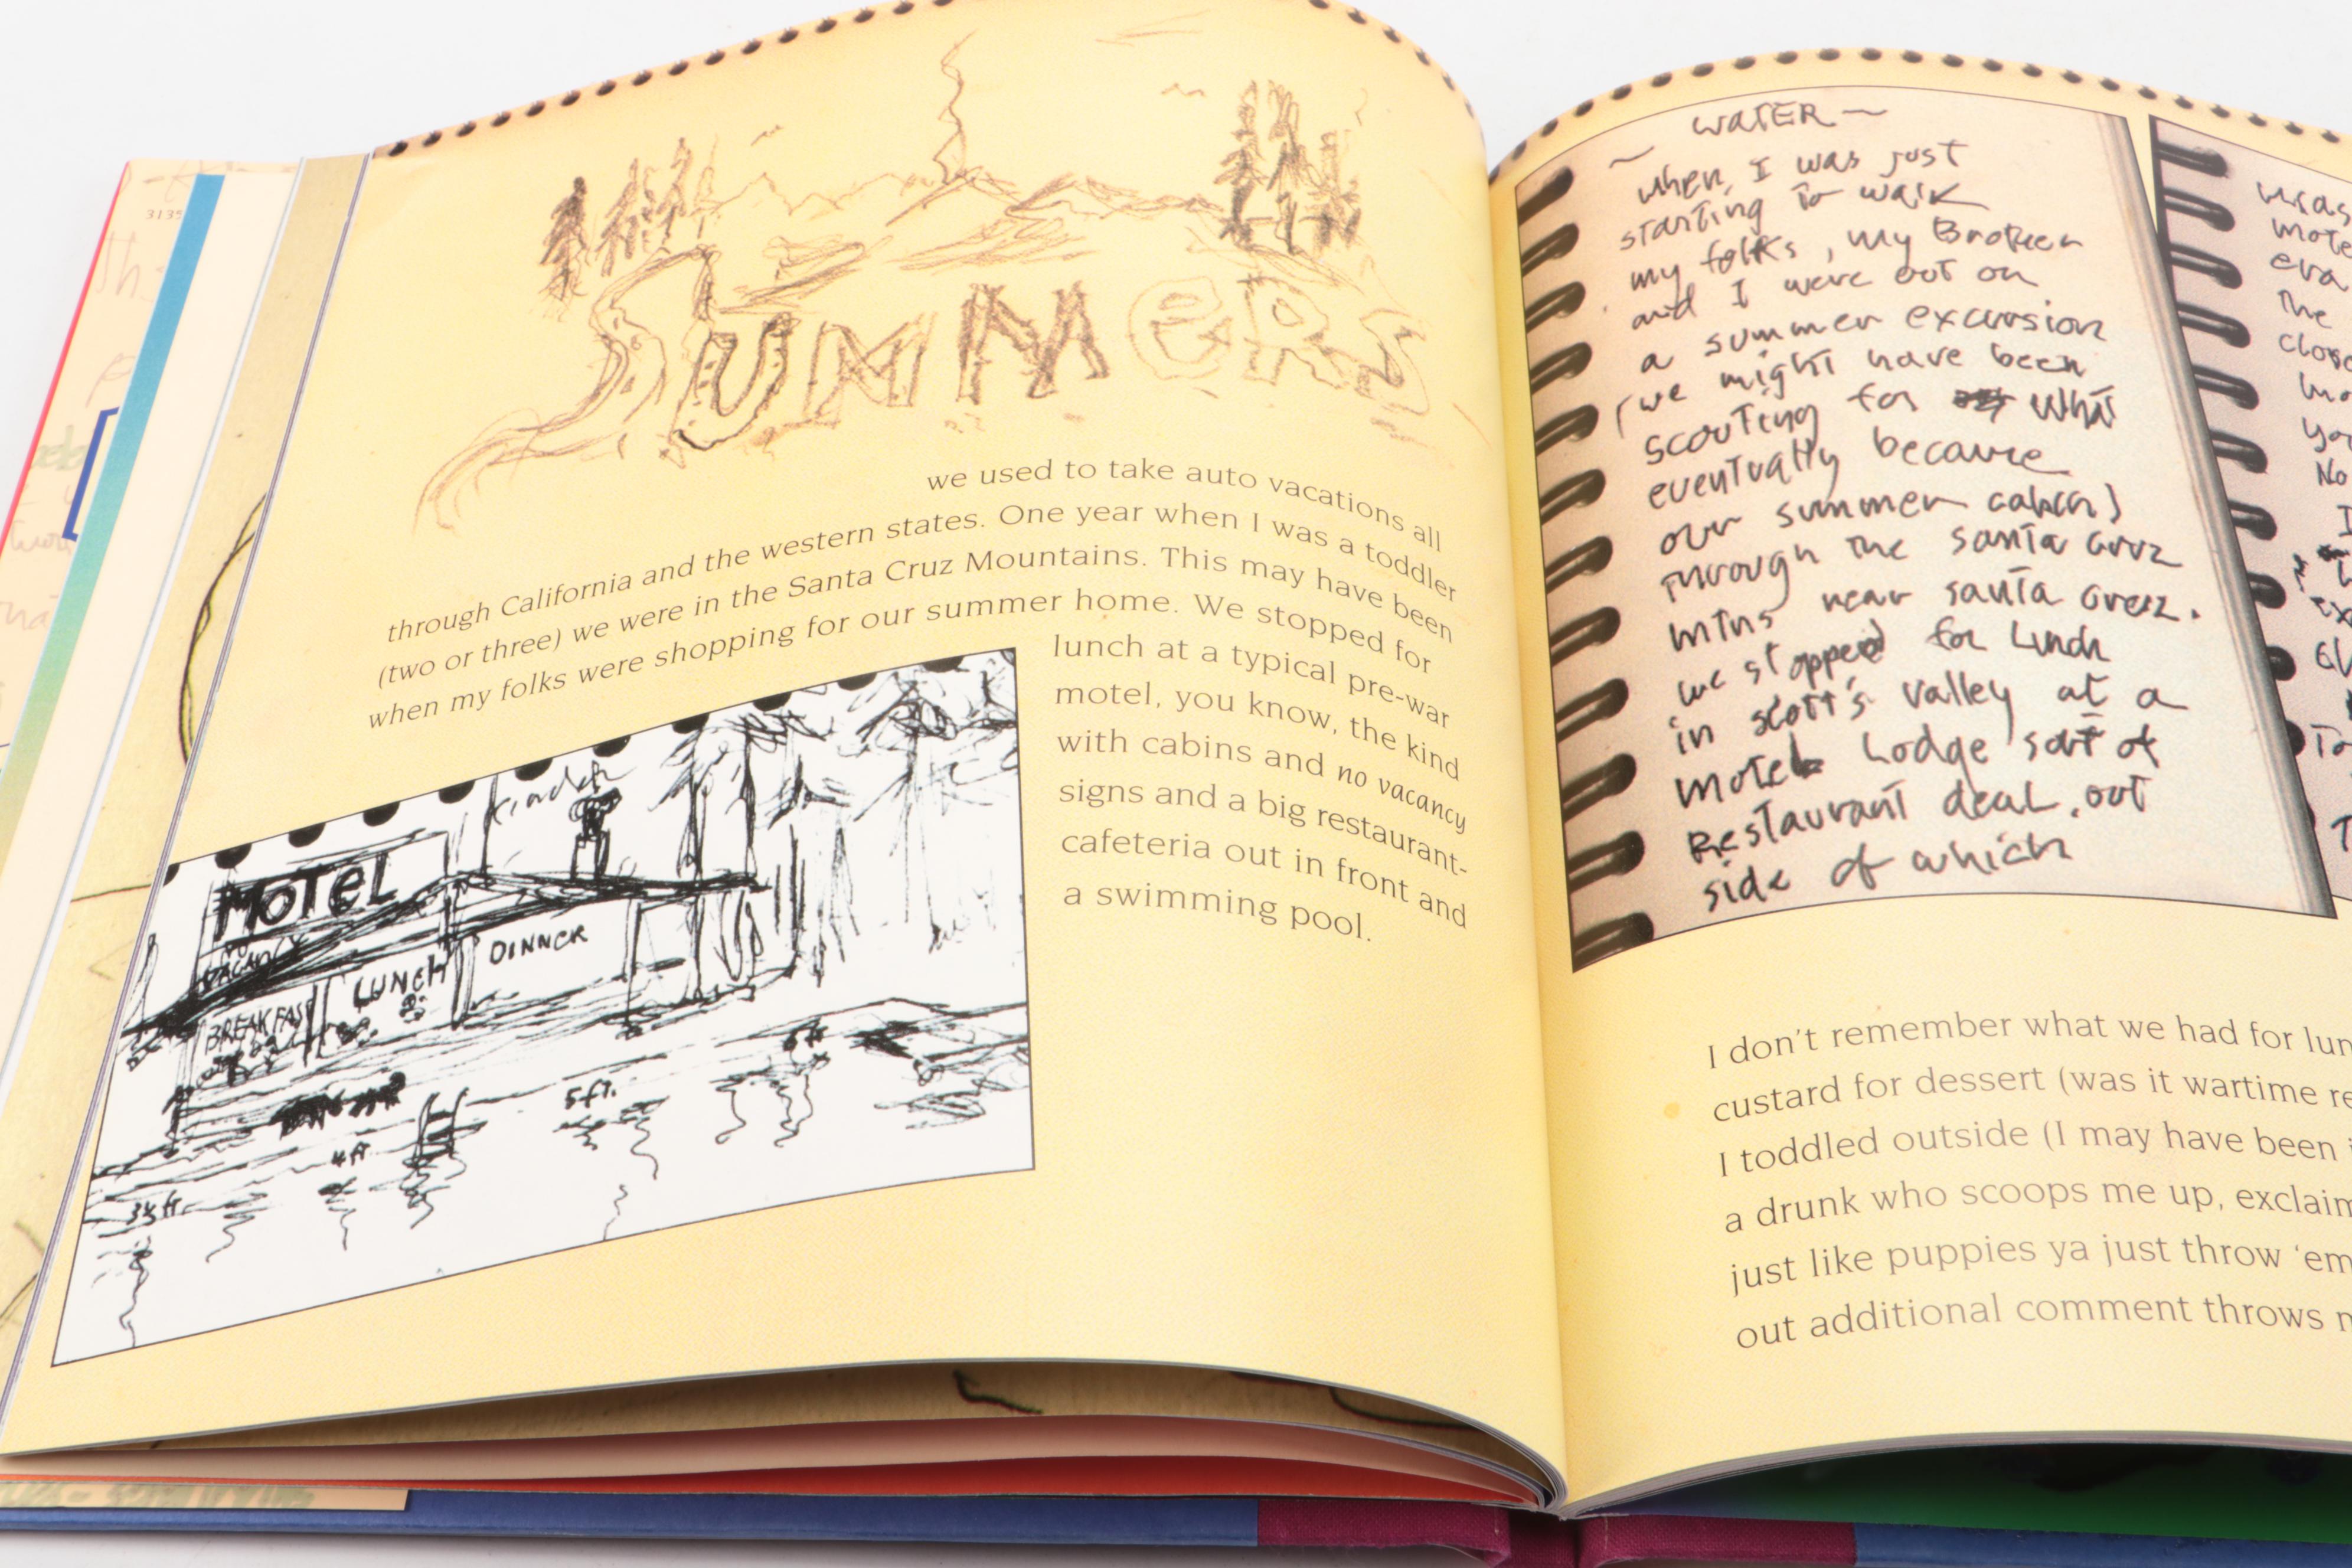 SUMMERS
we used to take auto vacations all
through California and the western states. One year when I was a toddler
(two or three) we were in the Santa Cruz Mountains. This may have been
when my folks were shopping for our summer home. We stopped for
lunch at a typical pre-war
motel, you know, the kind
with cabins and no vacancy
signs and a big restaurant-
cafeteria out in front and
a swimming pool.
MOTEL
NO
VACANCY
BREAKFAST
LUNCH
DINNER
3½ ft
4 ft
5 ft.
6 ft
~ WATER ~
when I was just
starting to walk
my folks, my Brother
and I were out on
a summer excursion
(we might have been
scouting for what
eventually became
our summer cabin)
through the santa cruz
mtns near santa cruz.
we stopped for Lunch
in scott's valley at a
motel Lodge sort of
Restaurant deal, out
side of which
the
No
I
I don't remember what we had for
custard for dessert (was it wartime
I toddled outside (I may have been
a drunk who scoops me up,
just like puppies ya just throw 'em
out additional comment throws
3135